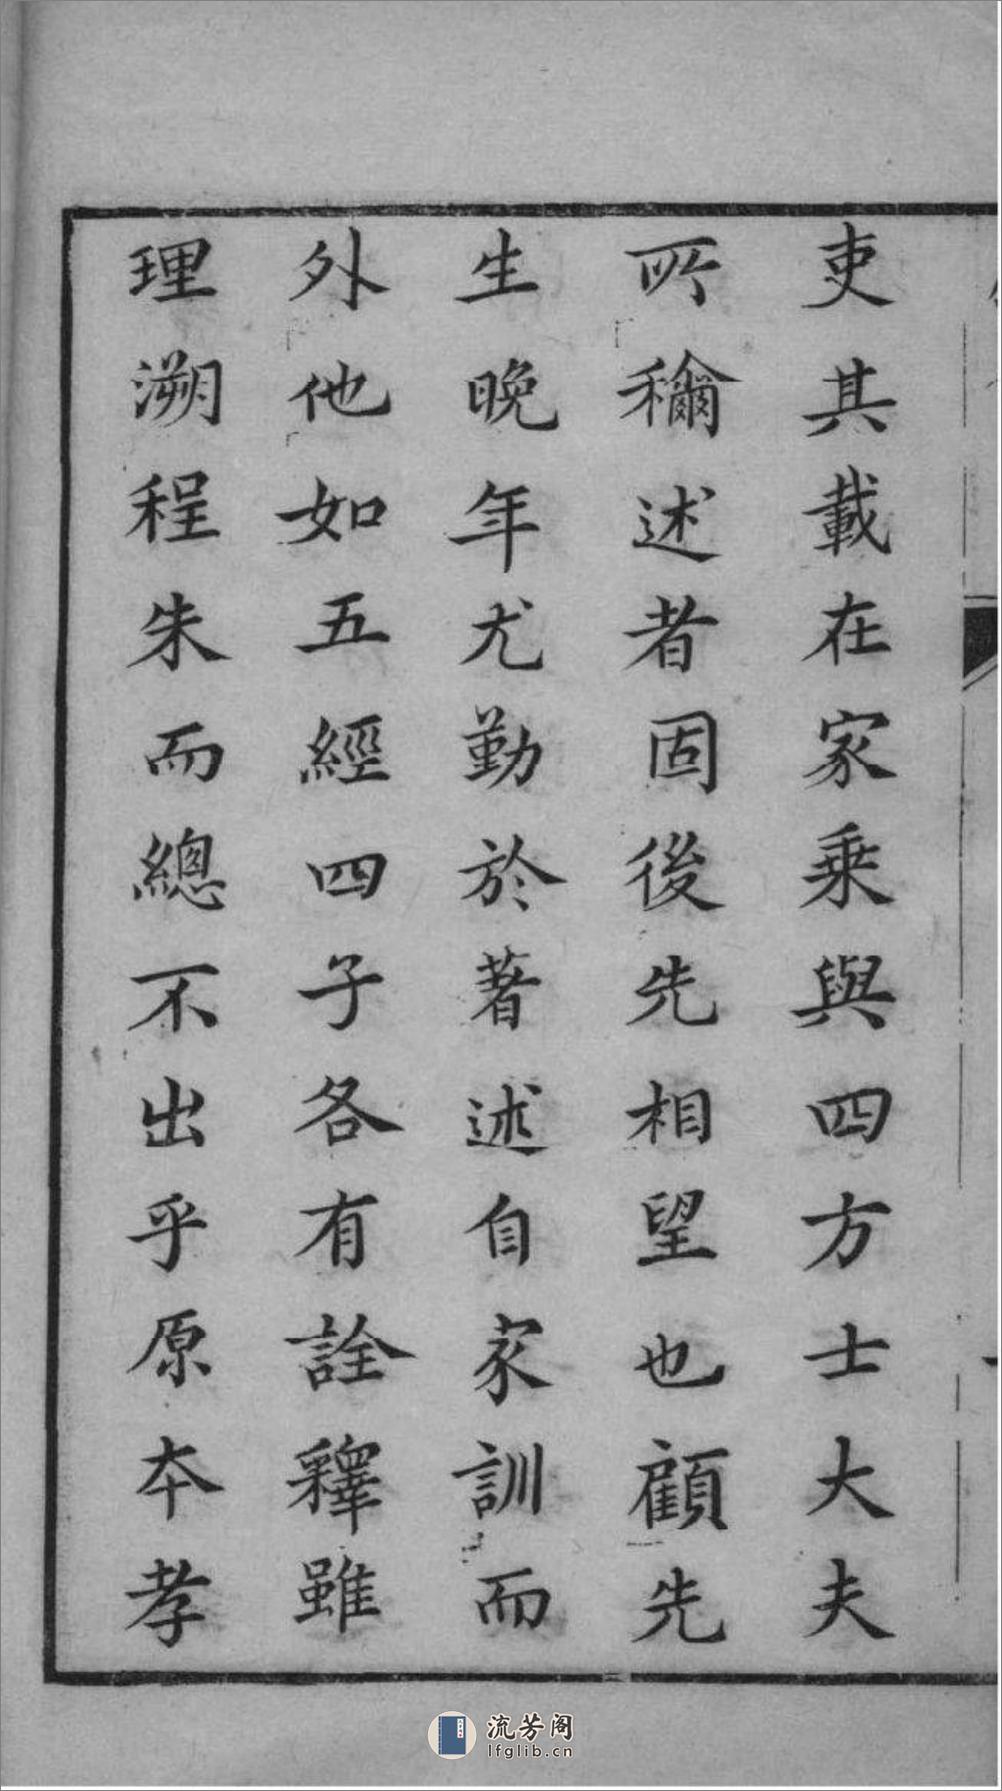 吏其載在家乘與四方士大夫
所稱述者固後先相望也顧先
生晚年尤勤於著述自家訓而
外他如五經四子各有詮釋雖
理溯程朱而總不出乎原本孝
流芳阁
lfglib.cn